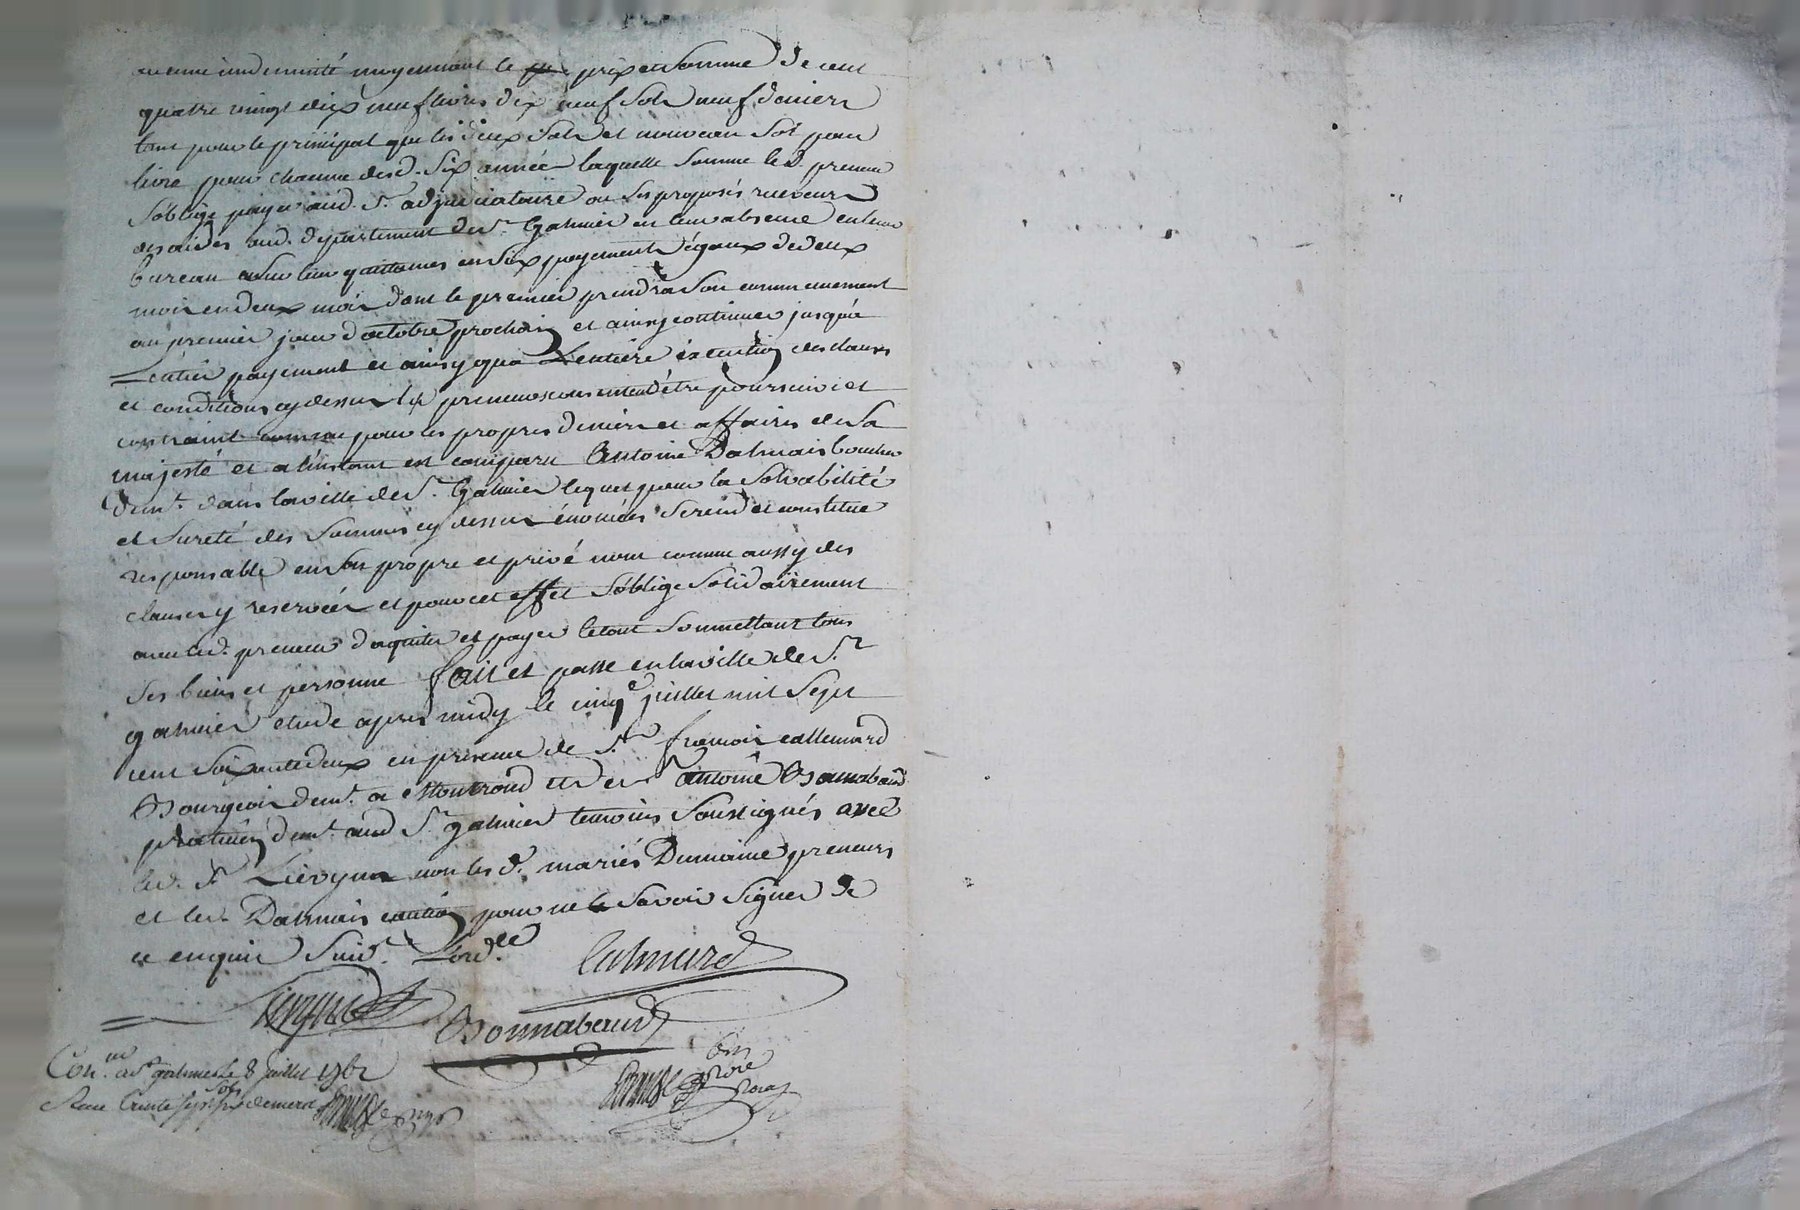 aucune indemnité moyennant le prix et somme de cent
quatre vingt dix neuf livres dix neuf sols neuf deniers
tant pour le principal que les deux sols et nouveau sol pour
livre pour chacune desd. six année laquelle somme led. preneur
s'oblige payer aud. Sr. adjudicataire ou ses proposés receveurs
des aides aud. département de St. Galmier en leur absence en leur
bureau sur leur quittances en six payements égaux de deux
mois en deux mois dont le premier prendra son commencement
au premier jour d'octobre prochain et ainsy continuer jusqu'à
l'entier payement et ainsy qu'a l'entière execution des clauses
et conditions cy dessus preneurs entend être poursuivi et
contraint comme pour les propres deniers et affaires de sa
majesté et a l'instant est comparu Antoine Dalmais boucher
demt. dans la ville de St. Galmier lequel pour la solvabilité
et sureté des sommes cy dessus énoncées se rend et constitue
responsable en son propre et privé nom comme aussy des
clauses y reservées et pour cet effet s'oblige solidairement
avec led. preneur d'aquiter et payer le tout soumettant tous
ses biens et personne fait et passé en la ville de St.
galmier etude apres midy le cinqe juillet mil sept
cent soixante deux en presence de Sr. françois callemard
Bourgeois demt. a Montrond et de Sr. antoine Bonnabaud
praticien demt. aud St. galmier temoins soussignés avec
led. Sr. non les d. mariés Dumaine preneurs
et led. Dalmais caution pour ne le savoir signer de
ce enquis suivt. l'ord.ce
Calmard
Bonnabaud
Con.lé a St galmier le 8 juillet 1762
Reçu trente sept sols six deniers